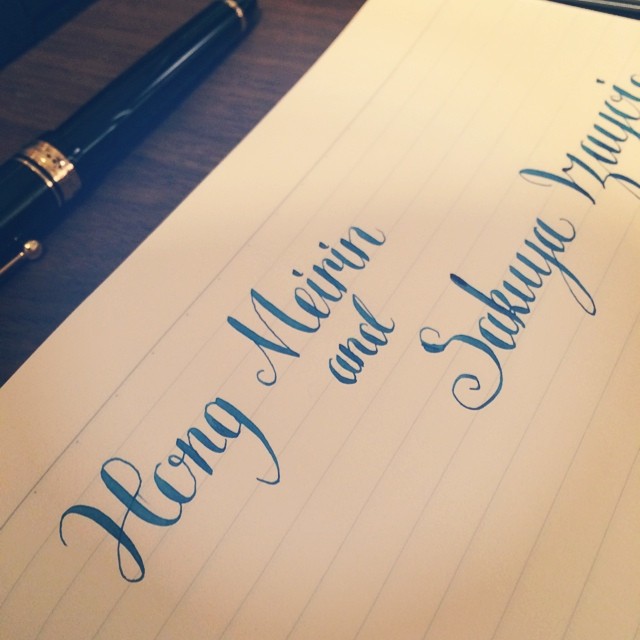 Hong Meirin
and
Sakuya Izayoi